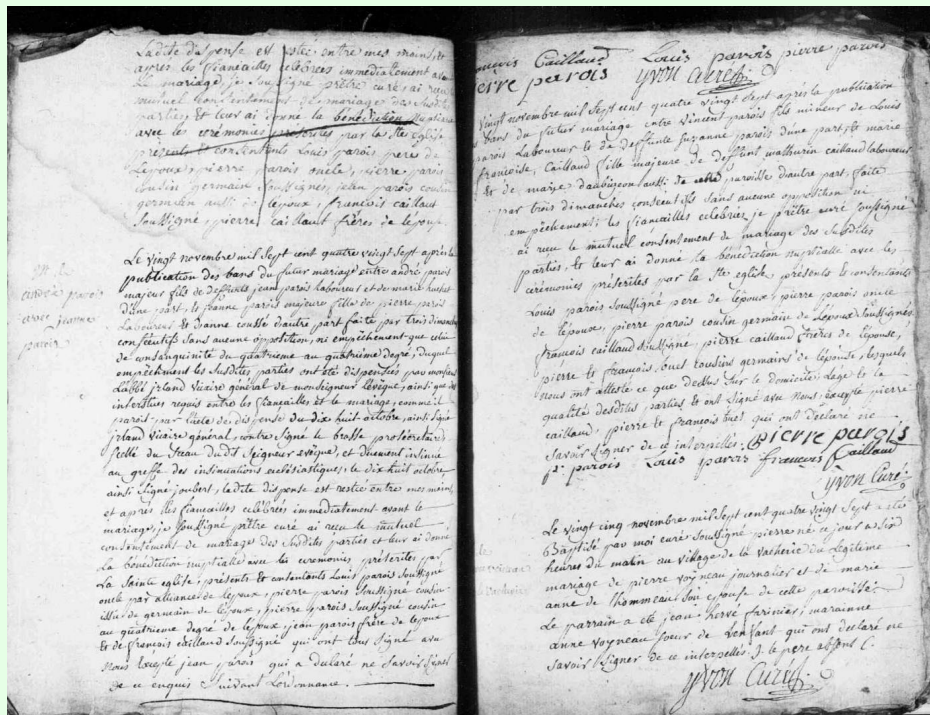 Ladite dispense est restée entre mes mains, et
après les fiancailles célébrées immediatement avant
Le mariage, je soussigné prêtre curé ai recu
mutuel consentement de mariage des susdites
parties et leur ai donné la bénédiction nuptiale
avec les cérémonies prescrites par la Ste église
présents et consentants Louis parois pere de
Lépoux, pierre parois oncle, pierre parois
cousin germain soussignés, jean parois cousin
germain aussi de lépoux, francois caillaut
soussigné, pierre caillaut frères de lépouse.
Le vingt novembre mil sept cent quatre vingt sept après la
publication des bans du futur mariage entre andré parois
majeur fils de deffunts jean parois laboureur et de marie
d'une part, et jeanne parois majeure fille de pierre parois
Laboureur et d'anne cousse d'autre part faite par trois dimanches
consécutifs sans aucune opposition, ni empêchement que celui
de consanguinité du quatrieme au quatrieme degré, duquel
empêchement les susdites parties ont été dispensées par monsieur
L'abbé vicaire général de monseigneur Levêque, ainsi que des
interstices requis entre les fiancailles et le mariage, comme il
paroit par l'acte de dispense du dix huit octobre, ainsi signé
vicaire général, contre signé le brasse prosécretaire,
scellé du sceau dudit seigneur evêque, et duement insinué
au greffe des insinuations ecclésiastiques, le dix huit octobre
ainsi signé joubert, ladite dispense est restée entre mes mains,
et après les fiancailles célébrées immediatement avant le
mariage, je soussigné prêtre curé ai recu le mutuel
consentement de mariage des susdites parties et leur ai donné
La bénédiction nuptialle avec les ceremonies prescrites par
La Sainte eglise, présents et contentants Louis parois soussigné
oncle par alliance de lépoux, pierre parois soussigné cousin
issu de germain de lépoux, pierre parois soussigné cousin
au quatrieme degré de lépoux jean parois frere de lépoux
et de francois caillaud soussigné qui ont tous signé avec
Nous excepté jean parois qui a declaré ne savoir signer
de ce enquis suivant Lordonnance.
andré parois
avec jeanne
parois
francois Caillaud Louis parois pierre parois
pierre parois yvon curé
vingt novembre mil sept cent quatre vingt sept après la publication
des bans du futur mariage entre vincent parois fils mineur de Louis
parois Laboureur et de deffunte suzanne parois d'une part, et marie
francoise Caillaud fille majeure de deffunt mathurin caillaud laboureur
et de marie daubigeon aussi de cette paroisse d'autre part, faite
par trois dimanches consécutifs sans aucune opposition ni
empêchement; les fiancailles célébrées, je prêtre curé soussigné
ai recu le mutuel consentement de mariage des susdites
parties, et leur ai donné la bénédiction nuptialle avec les
cérémonies préscrites par la Ste eglise, présents et consentants
Louis parois soussigné pere de lépoux, pierre parois oncle
de lépoux, pierre parois cousin germain de Lépoux soussignés
francois caillaud soussigné, pierre caillaud frères de lépouse,
pierre et francois huet cousins germains de lépouse, lesquels
nous ont attesté ce que dessus sur le domicile, Lage et la
qualité desdites parties et ont signé avec Nous, excepté pierre
caillaud, pierre et francois huet qui ont déclaré ne
savoir signer de ce interpellés. pierre parois
p. parois Louis parois francois Caillaud
yvon Curé
Le vingt cinq novembre mil sept cent quatre vingt sept a été
Baptisé par moi curé soussigné pierre né ce jour a six
heures du matin au village de la vacherie du Légitime
mariage de pierre voyneau journalier et de marie
anne de Lhommeau son epouse de cette paroisse.
Le parrain a été jean hervé farinier; maraine
anne voyneau soeur de Lenfant qui ont declaré ne
savoir signer de ce interpellés. le pere absent.
yvon Curé